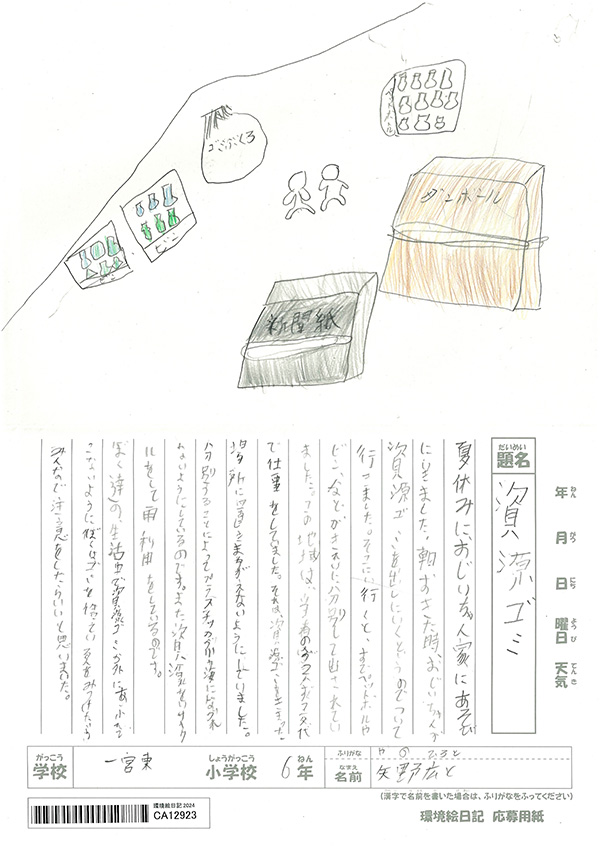 ペットボトル
ゴミぶくろ
ダンボール
ビン
ビン
新聞紙
だいめい
題名
資源ゴミ
年 ねん
月 がつ
日 にち
曜日 ようび
天気 てんき
夏休みに、おじいちゃん家にあそび
にいきました。朝おきた時、おじいちゃんが
資源ゴミを出しにいくというのでついて
行きました。そこに行くと、すでにペットボトルや
ビンなどがきれいに分別して出されてい
ました。この地域は、
で仕事をしていました。それは、資源ゴミを決まった
場所に置きまちがえないようにしていました。
分別することによってプラスチックが海にながれ
ないようにしているのです。また資源をリサイク
ルをして再利用をしているのです。
ぼく達の生活の中で資源ゴミが外にあふれて
こないように、ぼくはゴミを
みんなで注意をしたらいいと思いました。
がっこう
学校
一宮東
しょうがっこう
小学校
6年 ねん
ふりがな
やの ひろと
なまえ
名前
矢野広と
(漢字で名前を書いた場合は、ふりがなをふってください)
環境絵日記2024
CA12923
環境絵日記 応募用紙